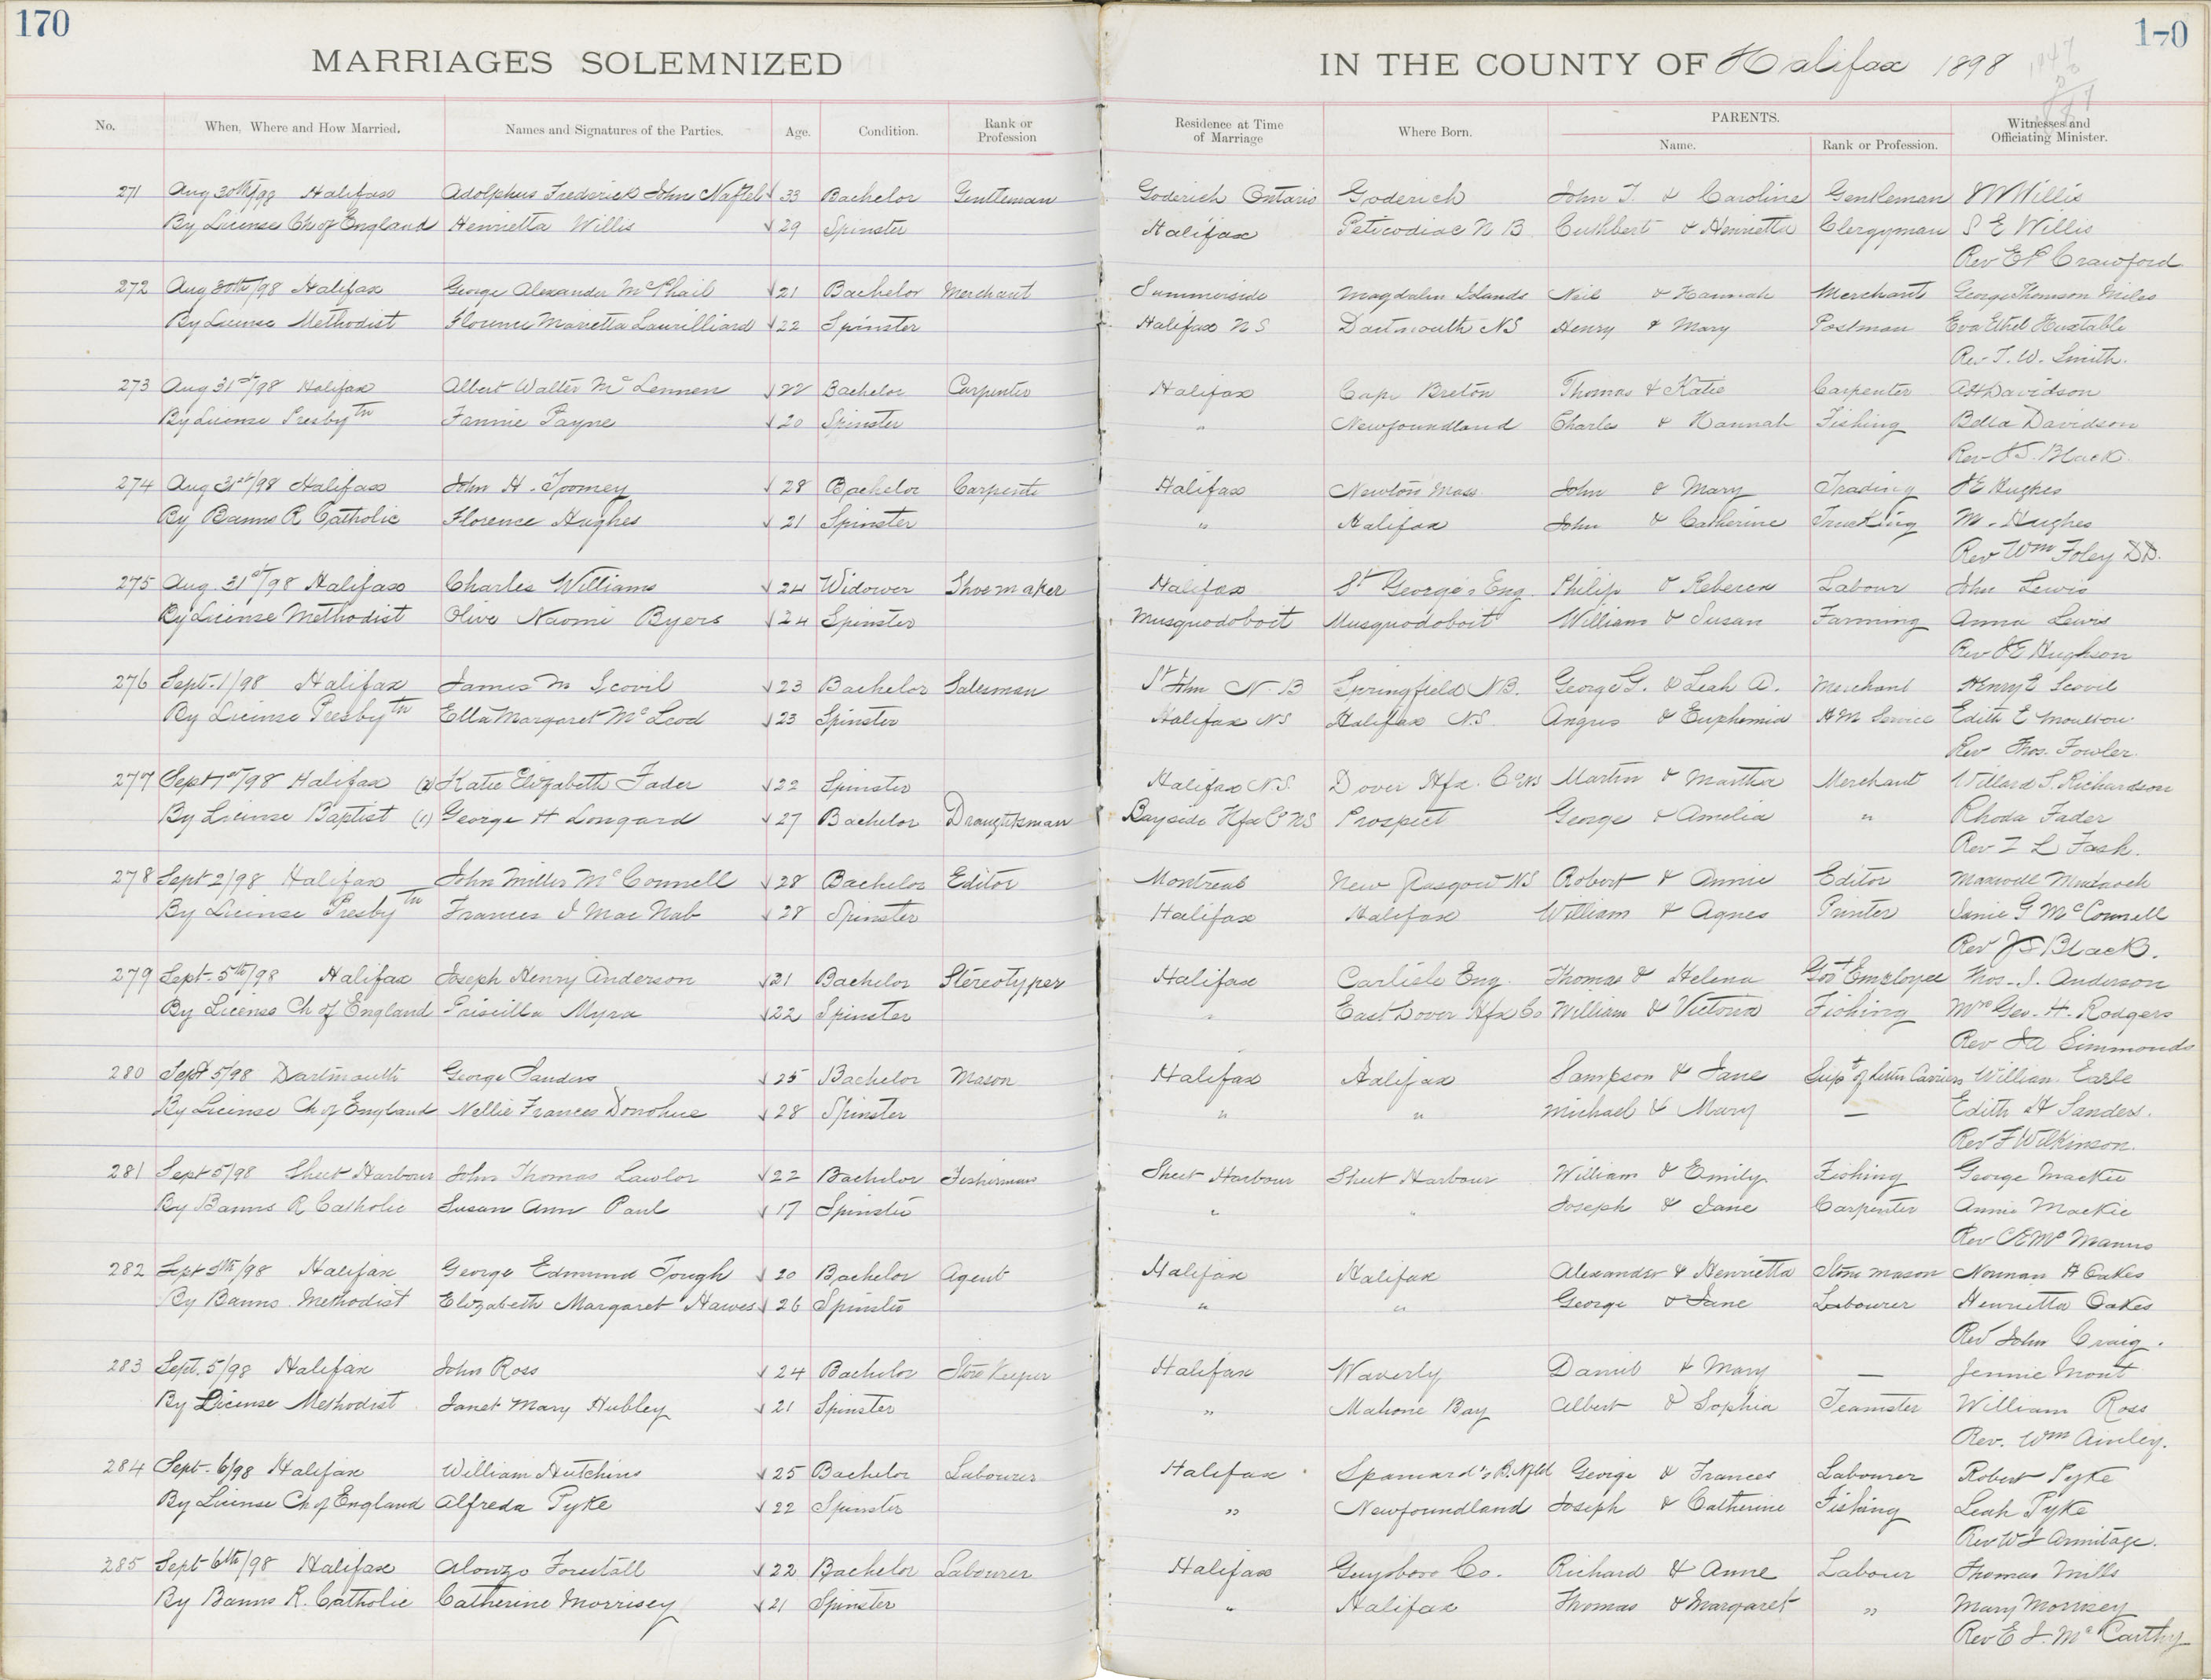 170
170
MARRIAGES SOLEMNIZED IN THE COUNTY OF Halifax 1898
No. When, Where and How Married. Names and Signatures of the Parties. Age. Condition. Rank or Profession Residence at Time of Marriage Where Born. PARENTS. Name. Rank or Profession. Witnesses and Officiating Minister.
271 Aug 30th/98 Halifax Adolphus Frederick John Naftel 33 Bachelor Gentleman Goderich Ontario Goderich John T. & Caroline Gentleman Willis
By License Ch of England Henrietta Willis 29 Spinster Halifax Peticodiac N B Cuthbert & Henrietta Clergyman S E Willis
Rev E P Crawford
272 Aug 30th/98 Halifax George Alexander McPhail 21 Bachelor Merchant Summerside Magdalen Islands Neil & Hannah Merchant George Thomson Miles
By License Methodist Florence Marietta Laurilliard 22 Spinster Halifax N S Dartmouth NS Henry & Mary Postman Eva Ethel Huxtable
Rev T. W. Smith.
273 Aug 31st/98 Halifax Albert Walter McLennen 22 Bachelor Carpenter Halifax Cape Breton Thomas & Katie Carpenter Davidson
By License Presbytn Fannie Payne 20 Spinster " Newfoundland Charles & Hannah Fishing Bella Davidson
Rev J S. Black.
274 Aug 31st/98 Halifax John H. Toomey 28 Bachelor Carpenter Halifax Newton Mass. John & Mary Trading J E Hughes
By Banns R Catholic Florence Hughes 21 Spinster " Halifax John & Catherine Trucking M. Hughes
Rev Wm Foley DD.
275 Aug. 31st/98 Halifax Charles Williams 24 Widower Shoemaker Halifax St George's Eng. Philip & Rebecca Labour John Lewis
By License Methodist Olive Naomi Byers 24 Spinster Musquodoboit Musquodoboit William & Susan Farming Anna Lewis
Rev J E Hughson
276 Sept. 1/98 Halifax James M Scovil 23 Bachelor Salesman St John N. B Springfield NB. George G. & Leah A. Merchant Henry E Scovil
By License Presbytn Ella Margaret McLeod 23 Spinster Halifax NS Halifax N.S Angus & Euphemia H M Service Edith E Moulton.
Rev Thos. Fowler.
277 Sept 1st/98 Halifax (2) Katie Elizabeth Fader 22 Spinster Halifax N.S. Dover Hfx. Co NS Martin & Martha Merchant Willard S. Richardson
By License Baptist (1) George H Longard 27 Bachelor Draughtsman Bayside Hfx Co NS Prospect George & Amelia " Rhoda Fader
Rev Z L Fash.
278 Sept 2/98 Halifax John Miller McConnell 28 Bachelor Editor Montreal New Glasgow NS Robert & Annie Editor Maxwell Murdoch
By License Presbytn Frances J MacNab 28 Spinster Halifax Halifax William & Agnes Printer Janie G McConnell
Rev J S Black.
279 Sept. 5th/98 Halifax Joseph Henry Anderson 21 Bachelor Stereotyper Halifax Carlisle Eng. Thomas & Helena Govt Employee Thos. J. Anderson
By License Ch of England Priscilla Myra 22 Spinster " East Dover Hfx Co William & Victoria Fishing Mrs Geo. H. Rodgers
Rev Simmonds
280 Sept 5/98 Dartmouth George Sanders 25 Bachelor Mason Halifax Halifax Sampson & Jane Supt of Letter Carriers William Earle
By License Ch of England Nellie Frances Donohue 28 Spinster " " Michael & Mary — Edith H Sanders.
Rev F Wilkinson.
281 Sept 5/98 Sheet Harbour John Thomas Lawlor 22 Bachelor Fisherman Sheet Harbour Sheet Harbour William & Emily Fishing George Mackie
By Banns R Catholic Susan Ann Paul 17 Spinster " " Joseph & Jane Carpenter Annie Mackie
Rev McManus
282 Sept 5th/98 Halifax George Edmund Tough 20 Bachelor Agent Halifax Halifax Alexander & Henrietta Stone Mason Norman H Oakes
By Banns Methodist Elizabeth Margaret Hawes 26 Spinster " " George & Jane Labourer Henrietta Oakes
Rev John Craig.
283 Sept. 5/98 Halifax John Ross 24 Bachelor Store Keeper Halifax Waverly Daniel & Mary — Jennie Mont
By License Methodist Janet Mary Hubley 21 Spinster " Mahone Bay Albert & Sophia Teamster William Ross
Rev. Wm Ainley.
284 Sept. 6/98 Halifax William Hutchins 25 Bachelor Labourer Halifax Spaniard's B. Nfld George & Frances Labourer Robert Pyke
By License Ch of England Alfreda Pyke 22 Spinster " Newfoundland Joseph & Catherine Fishing Leah Pyke
Rev W J Armitage.
285 Sept 6th/98 Halifax Alonzo Forestall 22 Bachelor Labourer Halifax Guysboro Co. Richard & Anne Labour Thomas Mills
By Banns R. Catholic Catherine Morrisey 21 Spinster " Halifax Thomas & Margaret " Mary Morrisey
Rev E J. McCarthy